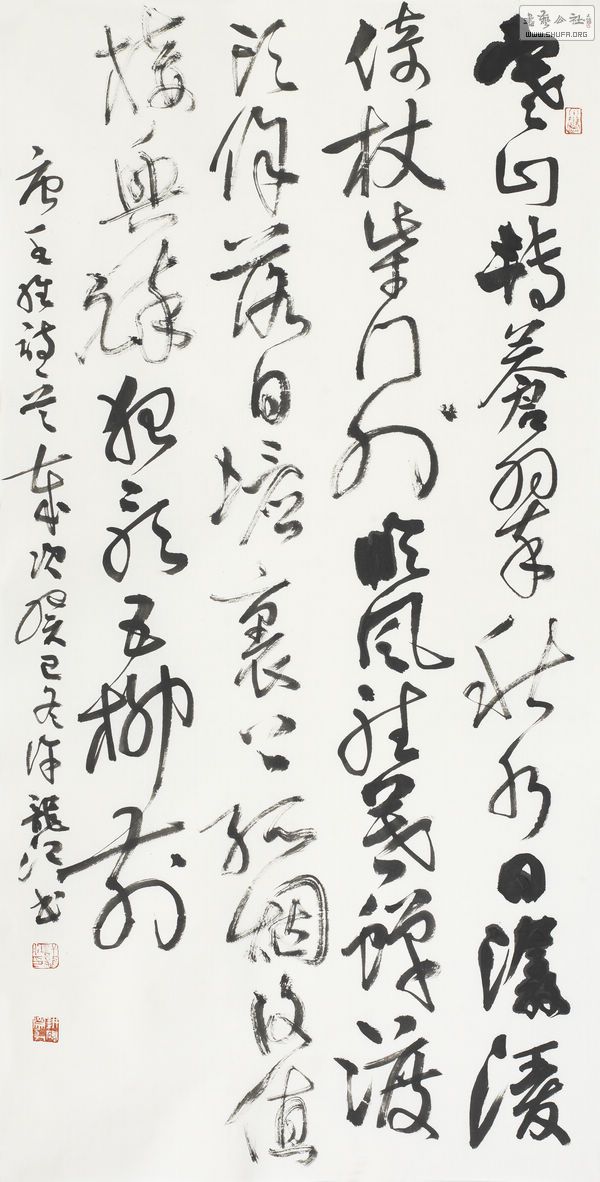 書藝公社
WWW.SHUFA.ORG
寒山轉蒼翠秋水日潺湲
倚杖柴門外臨風聽暮蟬渡
頭餘落日墟裏上孤烟復值
接輿醉狂歌五柳前
唐王維詩歲次癸巳冬許龍江書